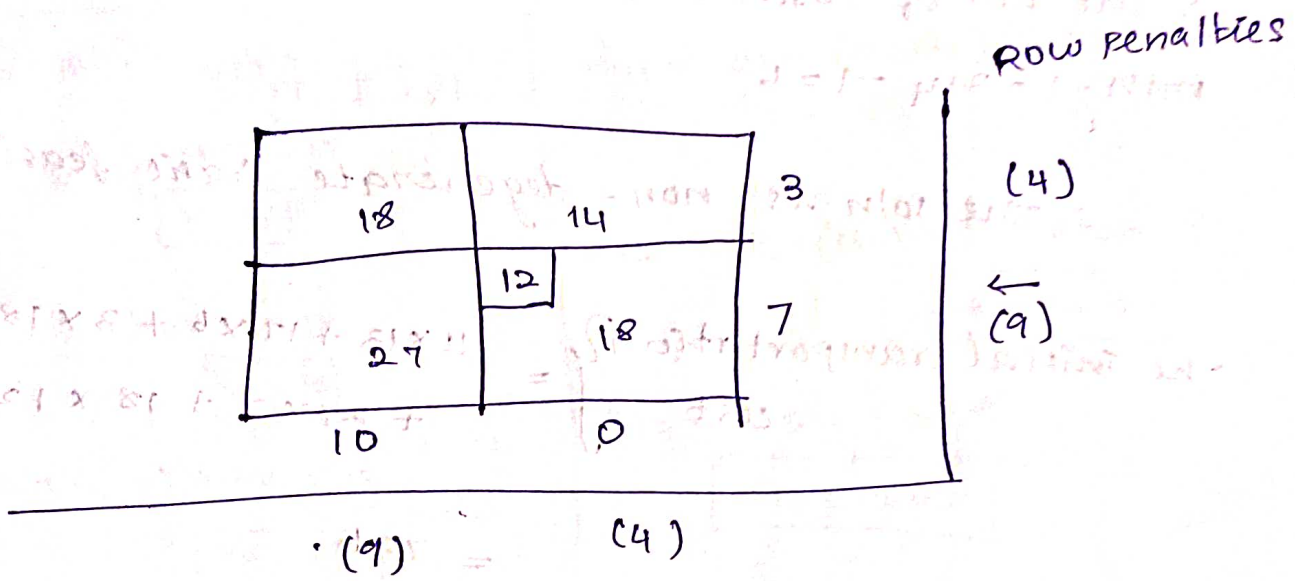 ROW penalties
18 14 3 (4)
12
27 18 7 ← (9)
10 0
(9) (4)